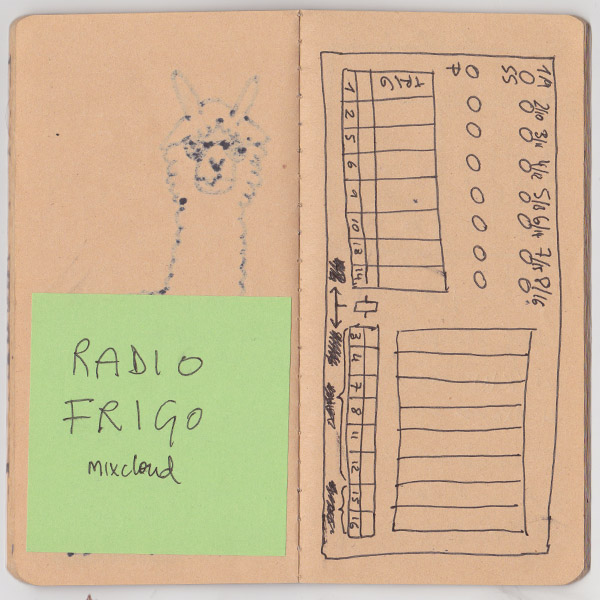 RADIO
FRIGO
mixcloud
1/9 2/10 3/11 4/12 5/13 6/14 7/15 8/16
SS
P
TRIG
1 2 5 6 9 10 13 14
3 4 7 8 11 12 15 16